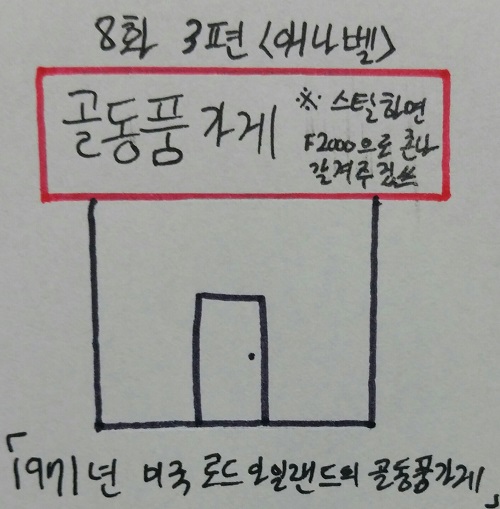 8화 3편 <애나벨>
골동품 가게
※ 스틸하면
F2000으로 존나
갈겨주겠쓰
「1971년 미국 로드아일랜드의 골동품가게」